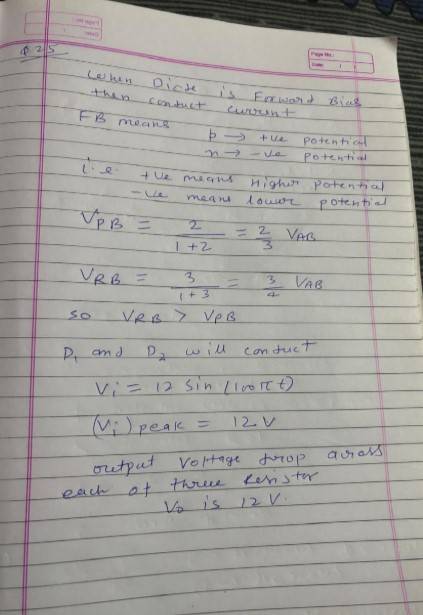 Q.25
Page No.:
Date: / /
When Diode is Forward Bias
then conduct current
FB means
p → +ve potential
n → -ve potential
i.e. +ve means Higher potential
-ve means lower potential
V_PB = 2/(1+2) = 2/3 V_AB
V_RB = 3/(1+3) = 3/4 V_AB
so V_RB > V_PB
D₁ and D₂ will conduct
Vi = 12 Sin (100πt)
(Vi) peak = 12 V
output voltage drop across
each of three Resistor
Vo is 12 V.